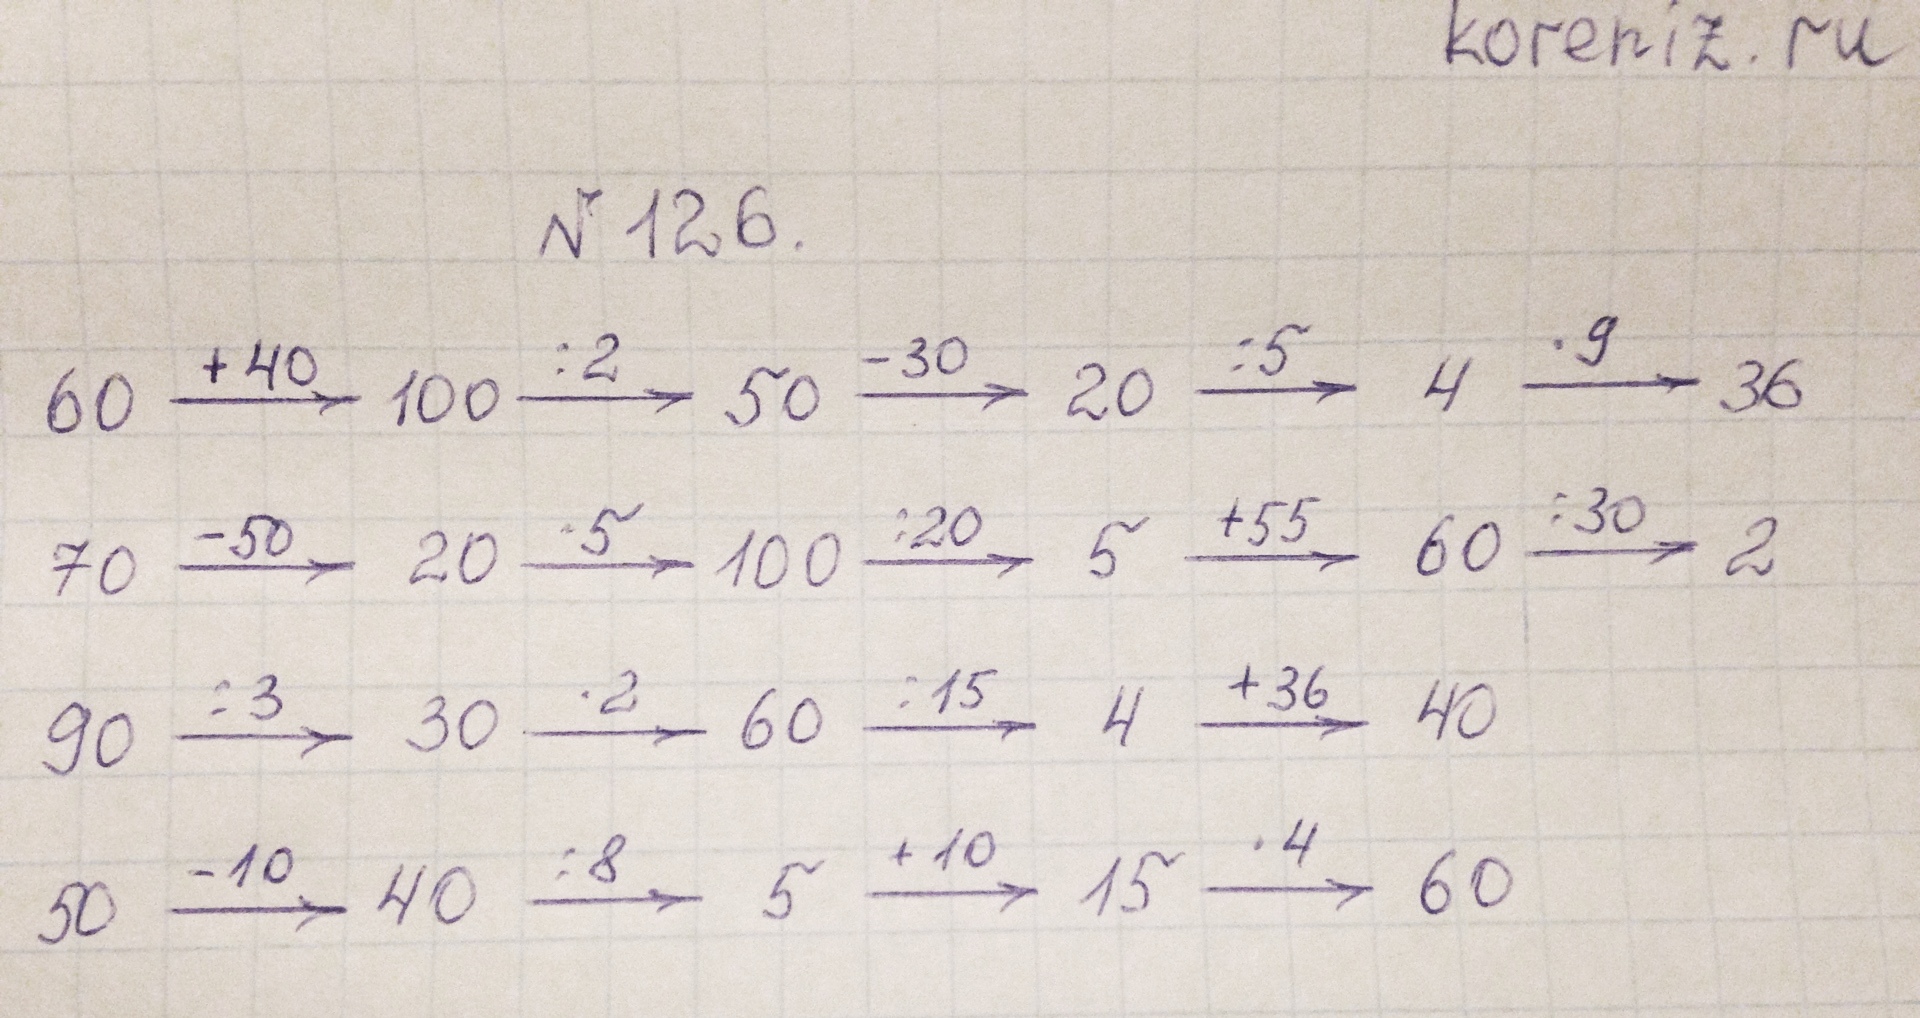 koreniz.ru
№ 126.
60 +40→ 100 :2→ 50 -30→ 20 :5→ 4 ·9→ 36
70 -50→ 20 ·5→ 100 :20→ 5 +55→ 60 :30→ 2
90 :3→ 30 ·2→ 60 :15→ 4 +36→ 40
50 -10→ 40 :8→ 5 +10→ 15 ·4→ 60